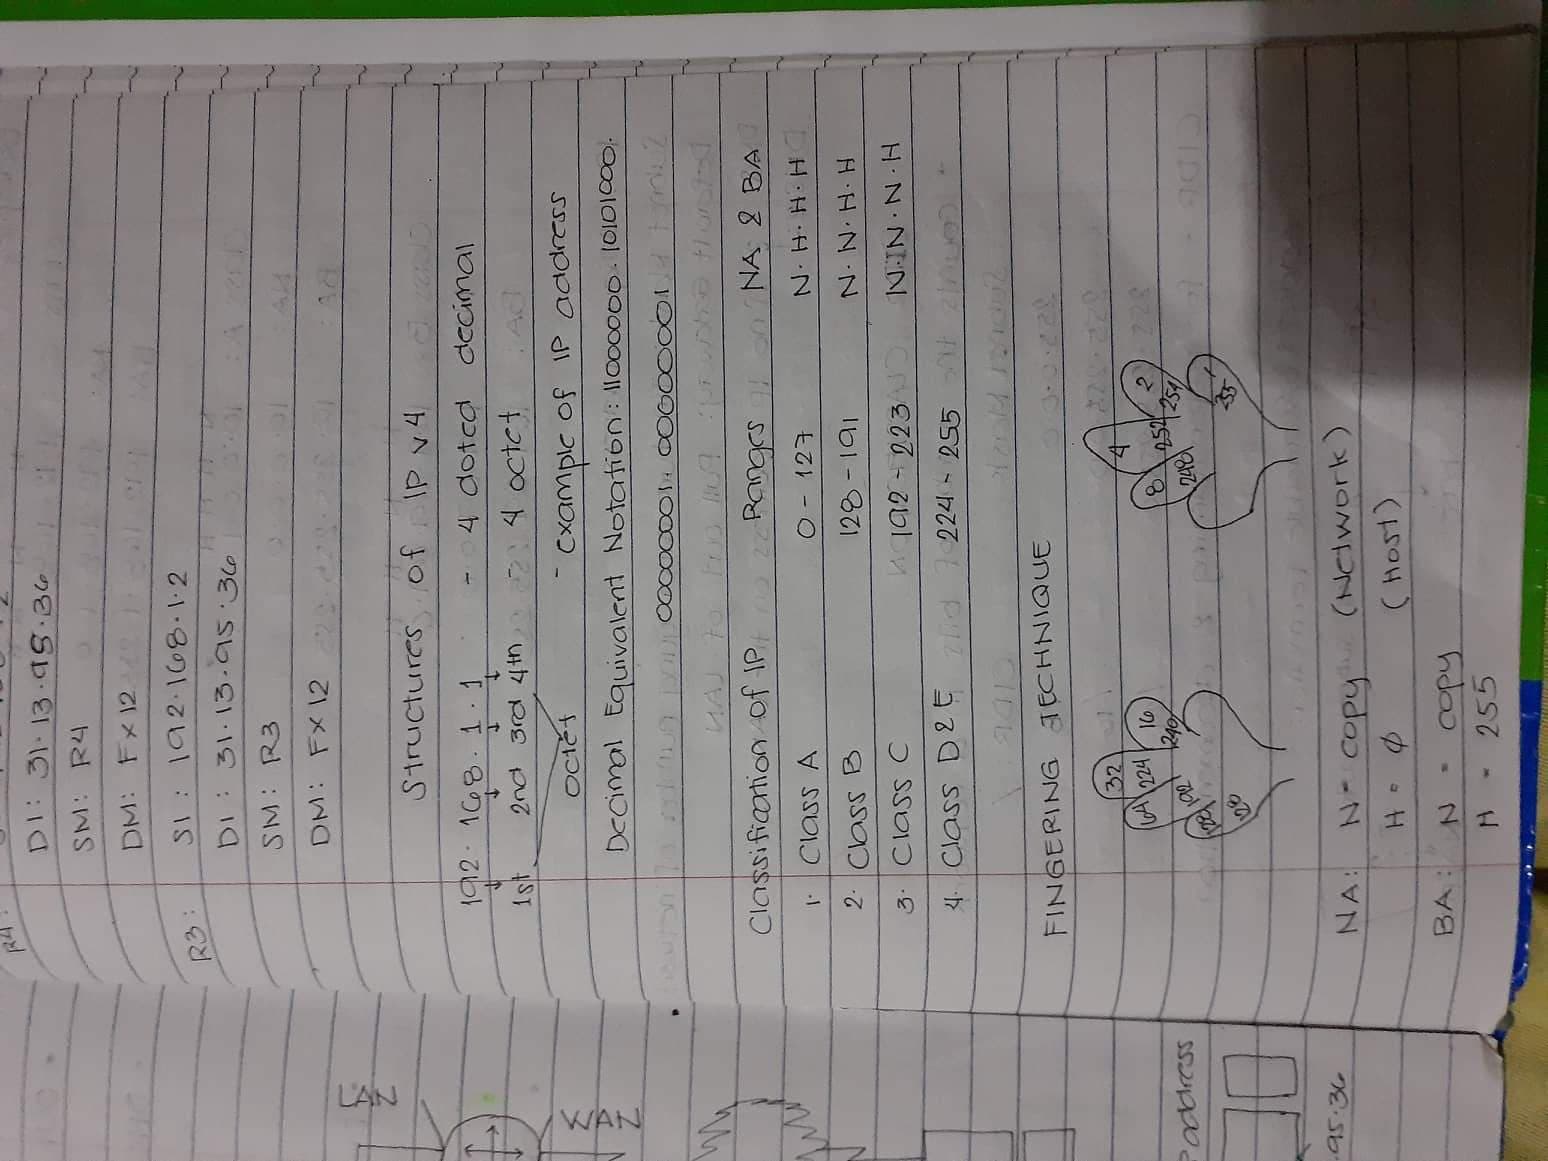 R4:
DI: 31.13.95.36
SM: R4
DM: FX12
R3: SI: 192.168.1.2
DI: 31.13.95.36
SM: R3
DM: FX12
Structures of IPv4
192.168.1.1 - 4 doted decimal
1st 2nd 3rd 4th - 4 octet
octet - example of IP address
Decimal Equivalent Notation: 11000000.10101000.
00000001.00000001
Classification of IP Ranges NA & BA
1. Class A 0-127 N.H.H.H
2. Class B 128-191 N.N.H.H
3. Class C 192-223 N.N.N.H
4. Class D & E 224-255
FINGERING TECHNIQUE
32 4
64 224 16 8 252 2
128 192 240 248 254 1
128 255
NA: N = copy (Network)
H = ∅ (Host)
BA: N = copy
H = 255
LAN
WAN
address
.95.36